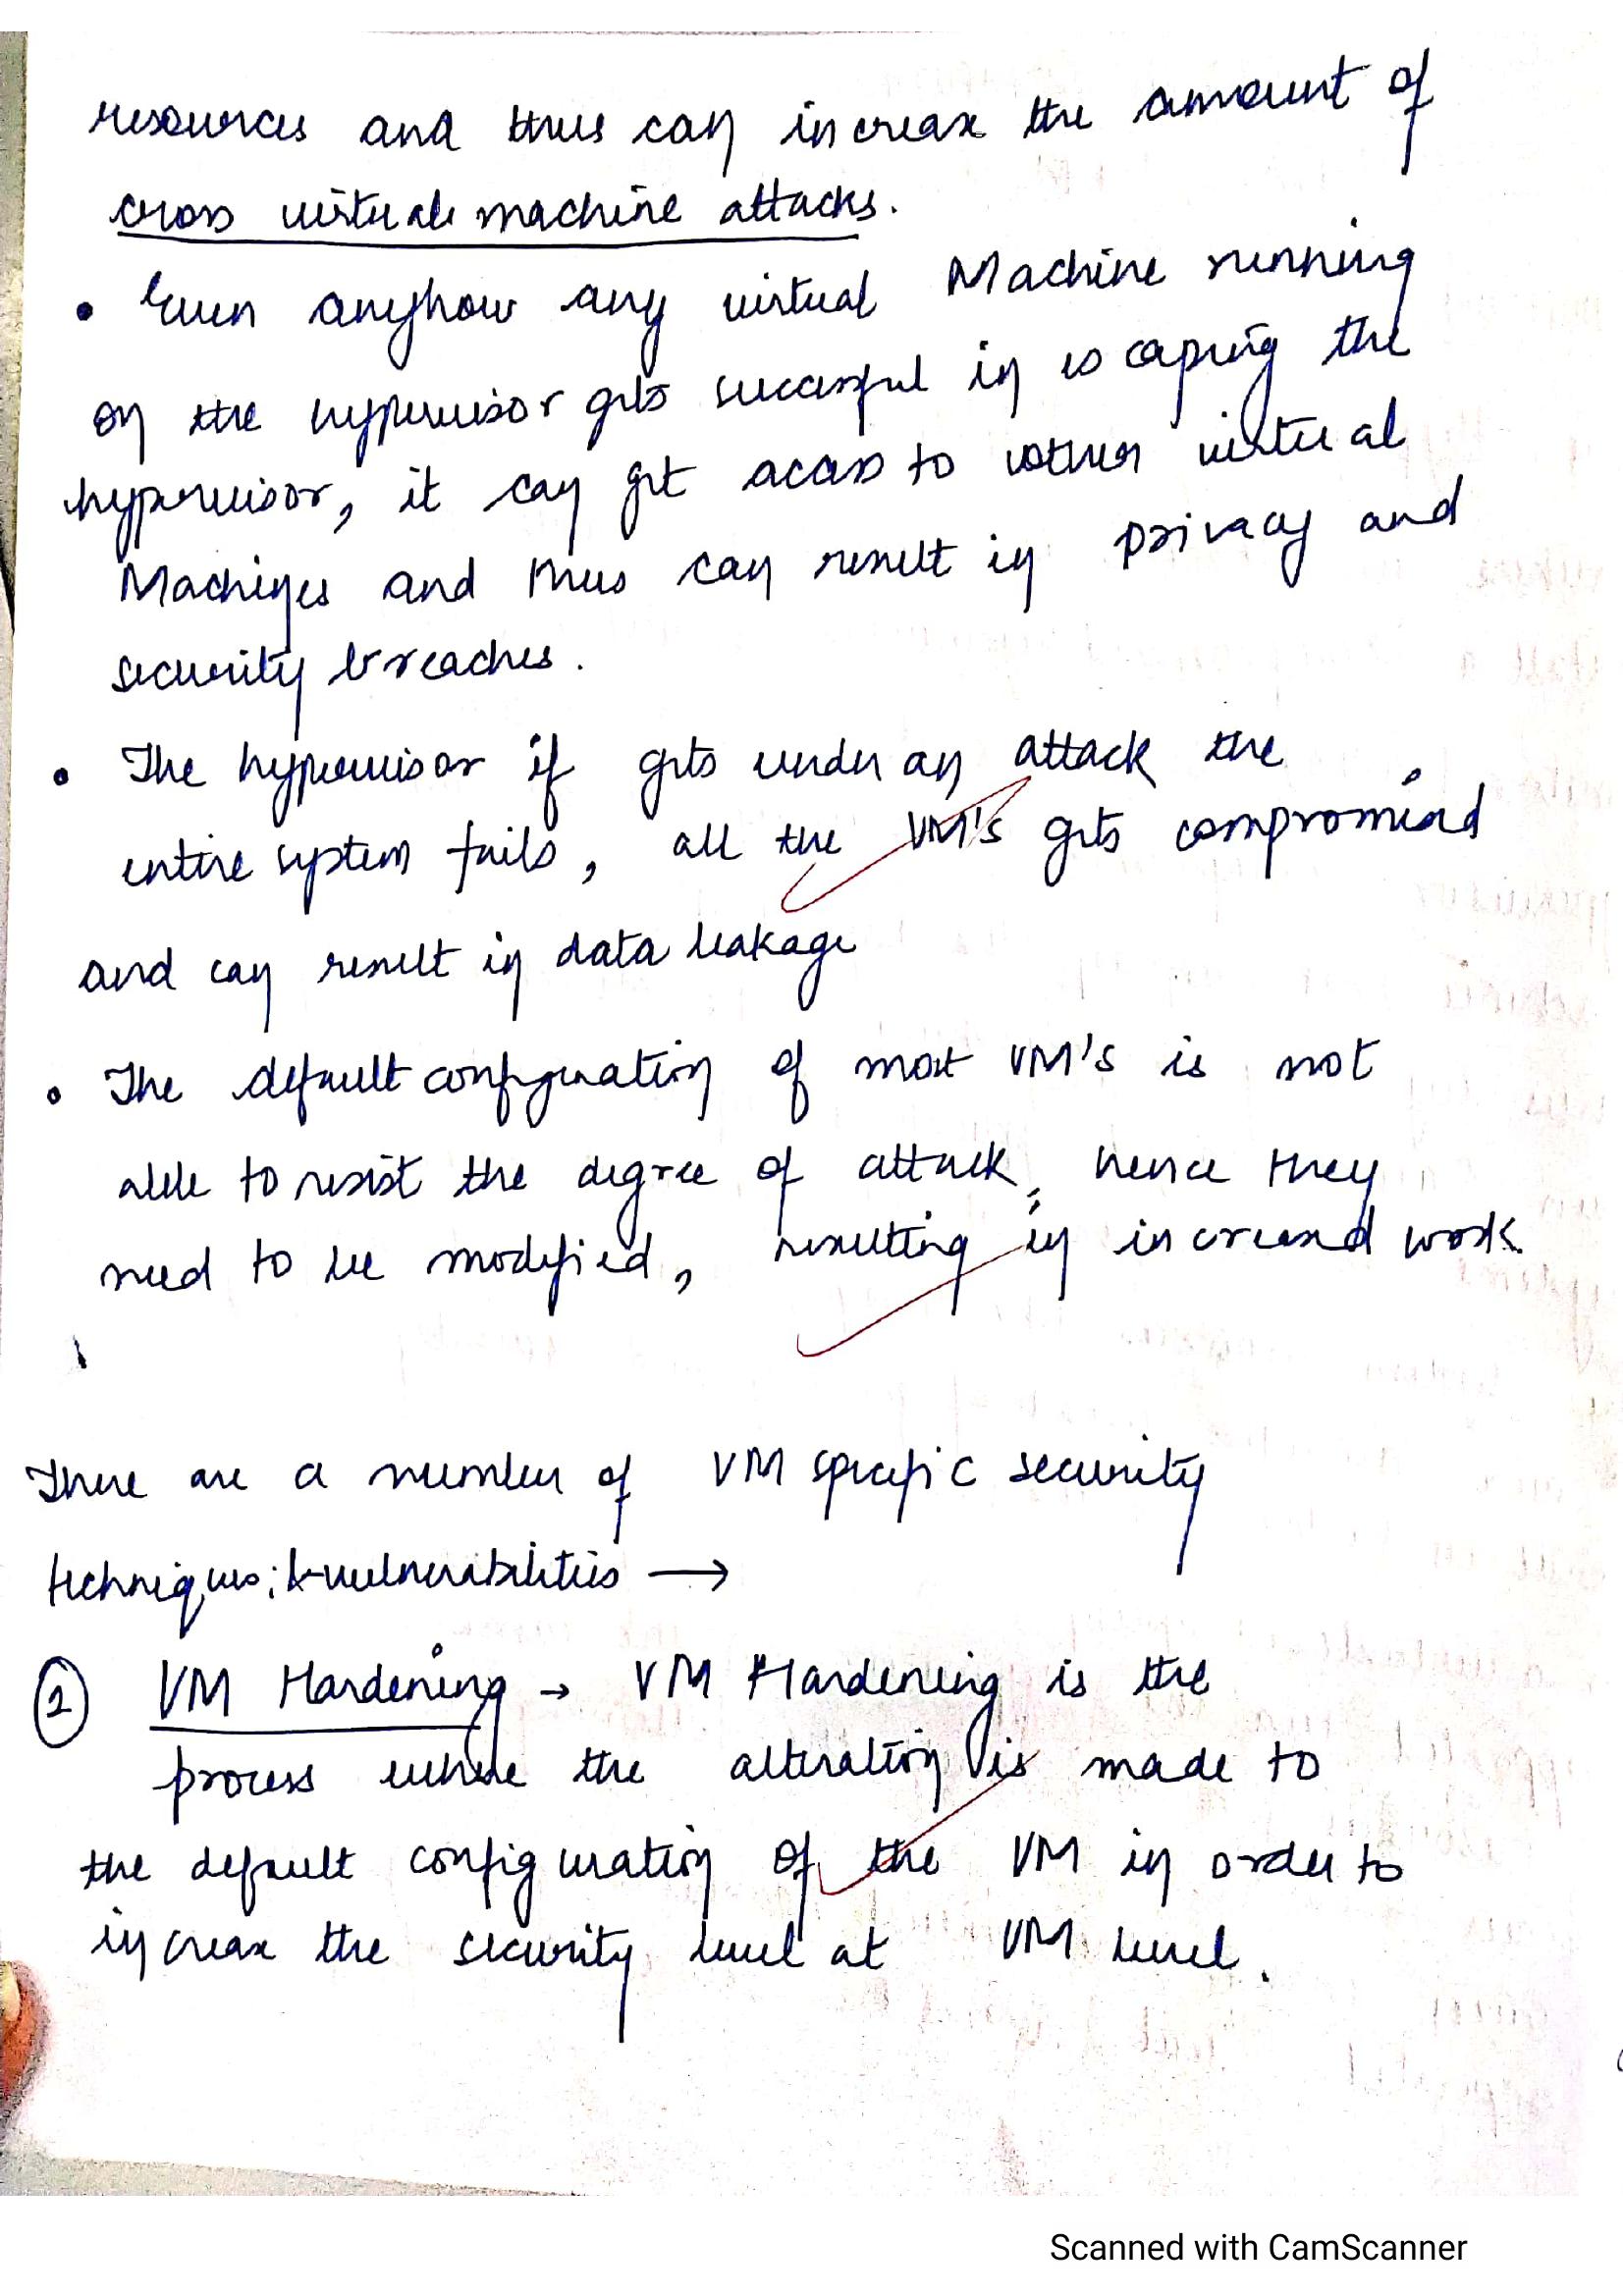 resources and thus can increase the amount of
cross virtual machine attacks.
• Even anyhow any virtual Machine running
on the hypervisor gets successful in escaping the
hypervisor, it can get access to other virtual
Machines and thus can result in privacy and
security breaches.
• The hypervisor if gets under an attack the
entire system fails, all the VM's gets compromised
and can result in data leakage
• The default configuration of most VM's is not
able to resist the degree of attack, hence they
need to be modified, resulting in increased work.
There are a number of VM specific security
techniques; & vulnerabilities →
① VM Hardening → VM Hardening is the
process where the alteration is made to
the default configuration of the VM in order to
increase the security level at VM level.
Scanned with CamScanner